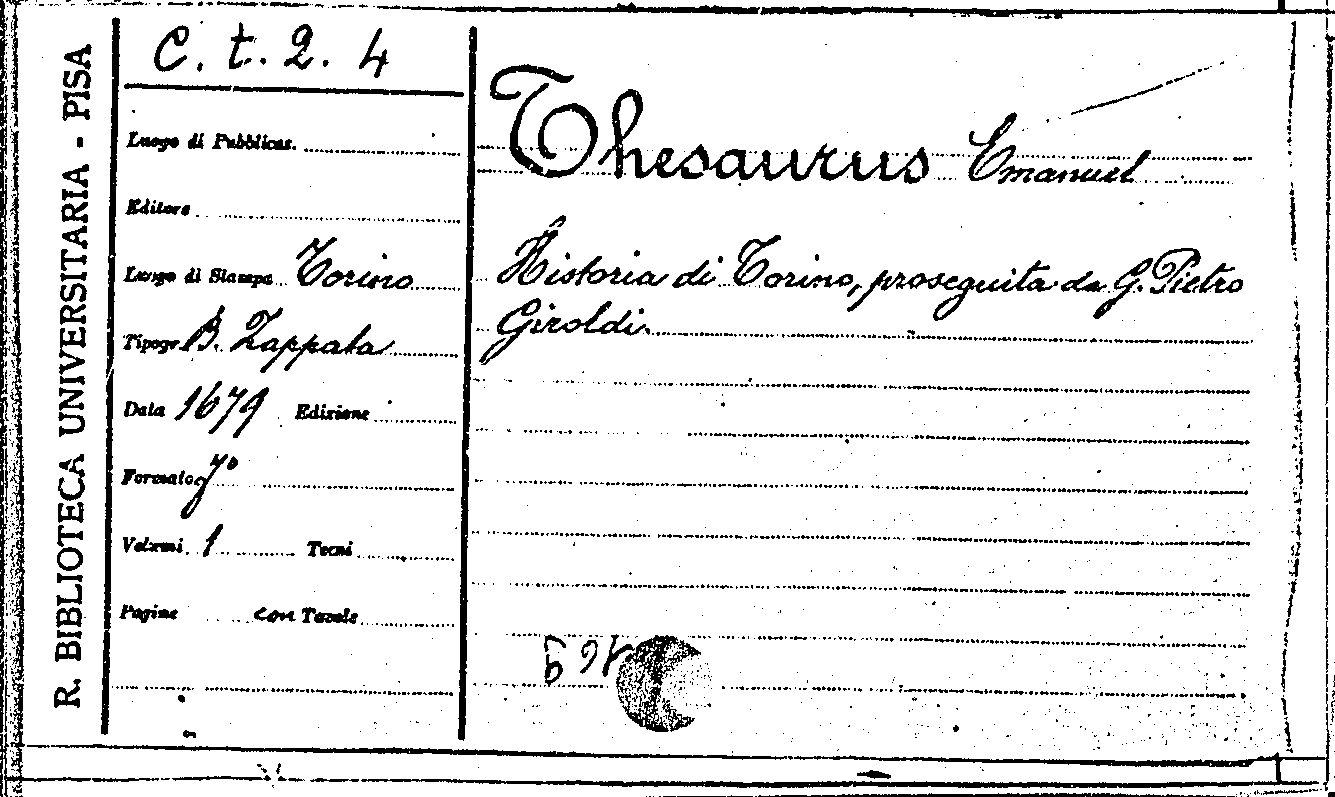 R. BIBLIOTECA UNIVERSITARIA - PISA
C. t. 2. 4
Luogo di Pubblicaz.
Editore
Luogo di Stampa Torino
Tipogr. B. Zappata
Data 1679 Edizione
Formato
Volumi 1 Tomi
Pagine con Tavole
Thesaurus Emanuel
Historia di Torino, proseguita da G. Pietro
Giroldi.